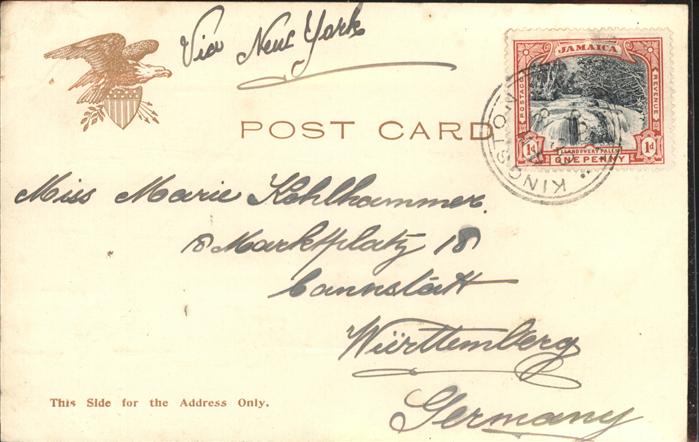 Via New York
POST CARD
JAMAICA
POSTAGE
REVENUE
LLANDOVERY FALLS
1d ONE PENNY 1d
KINGSTON
Miss Marie Kohlhammer.
Marktplatz 18
Cannstatt
Württemberg
Germany
This Side for the Address Only.